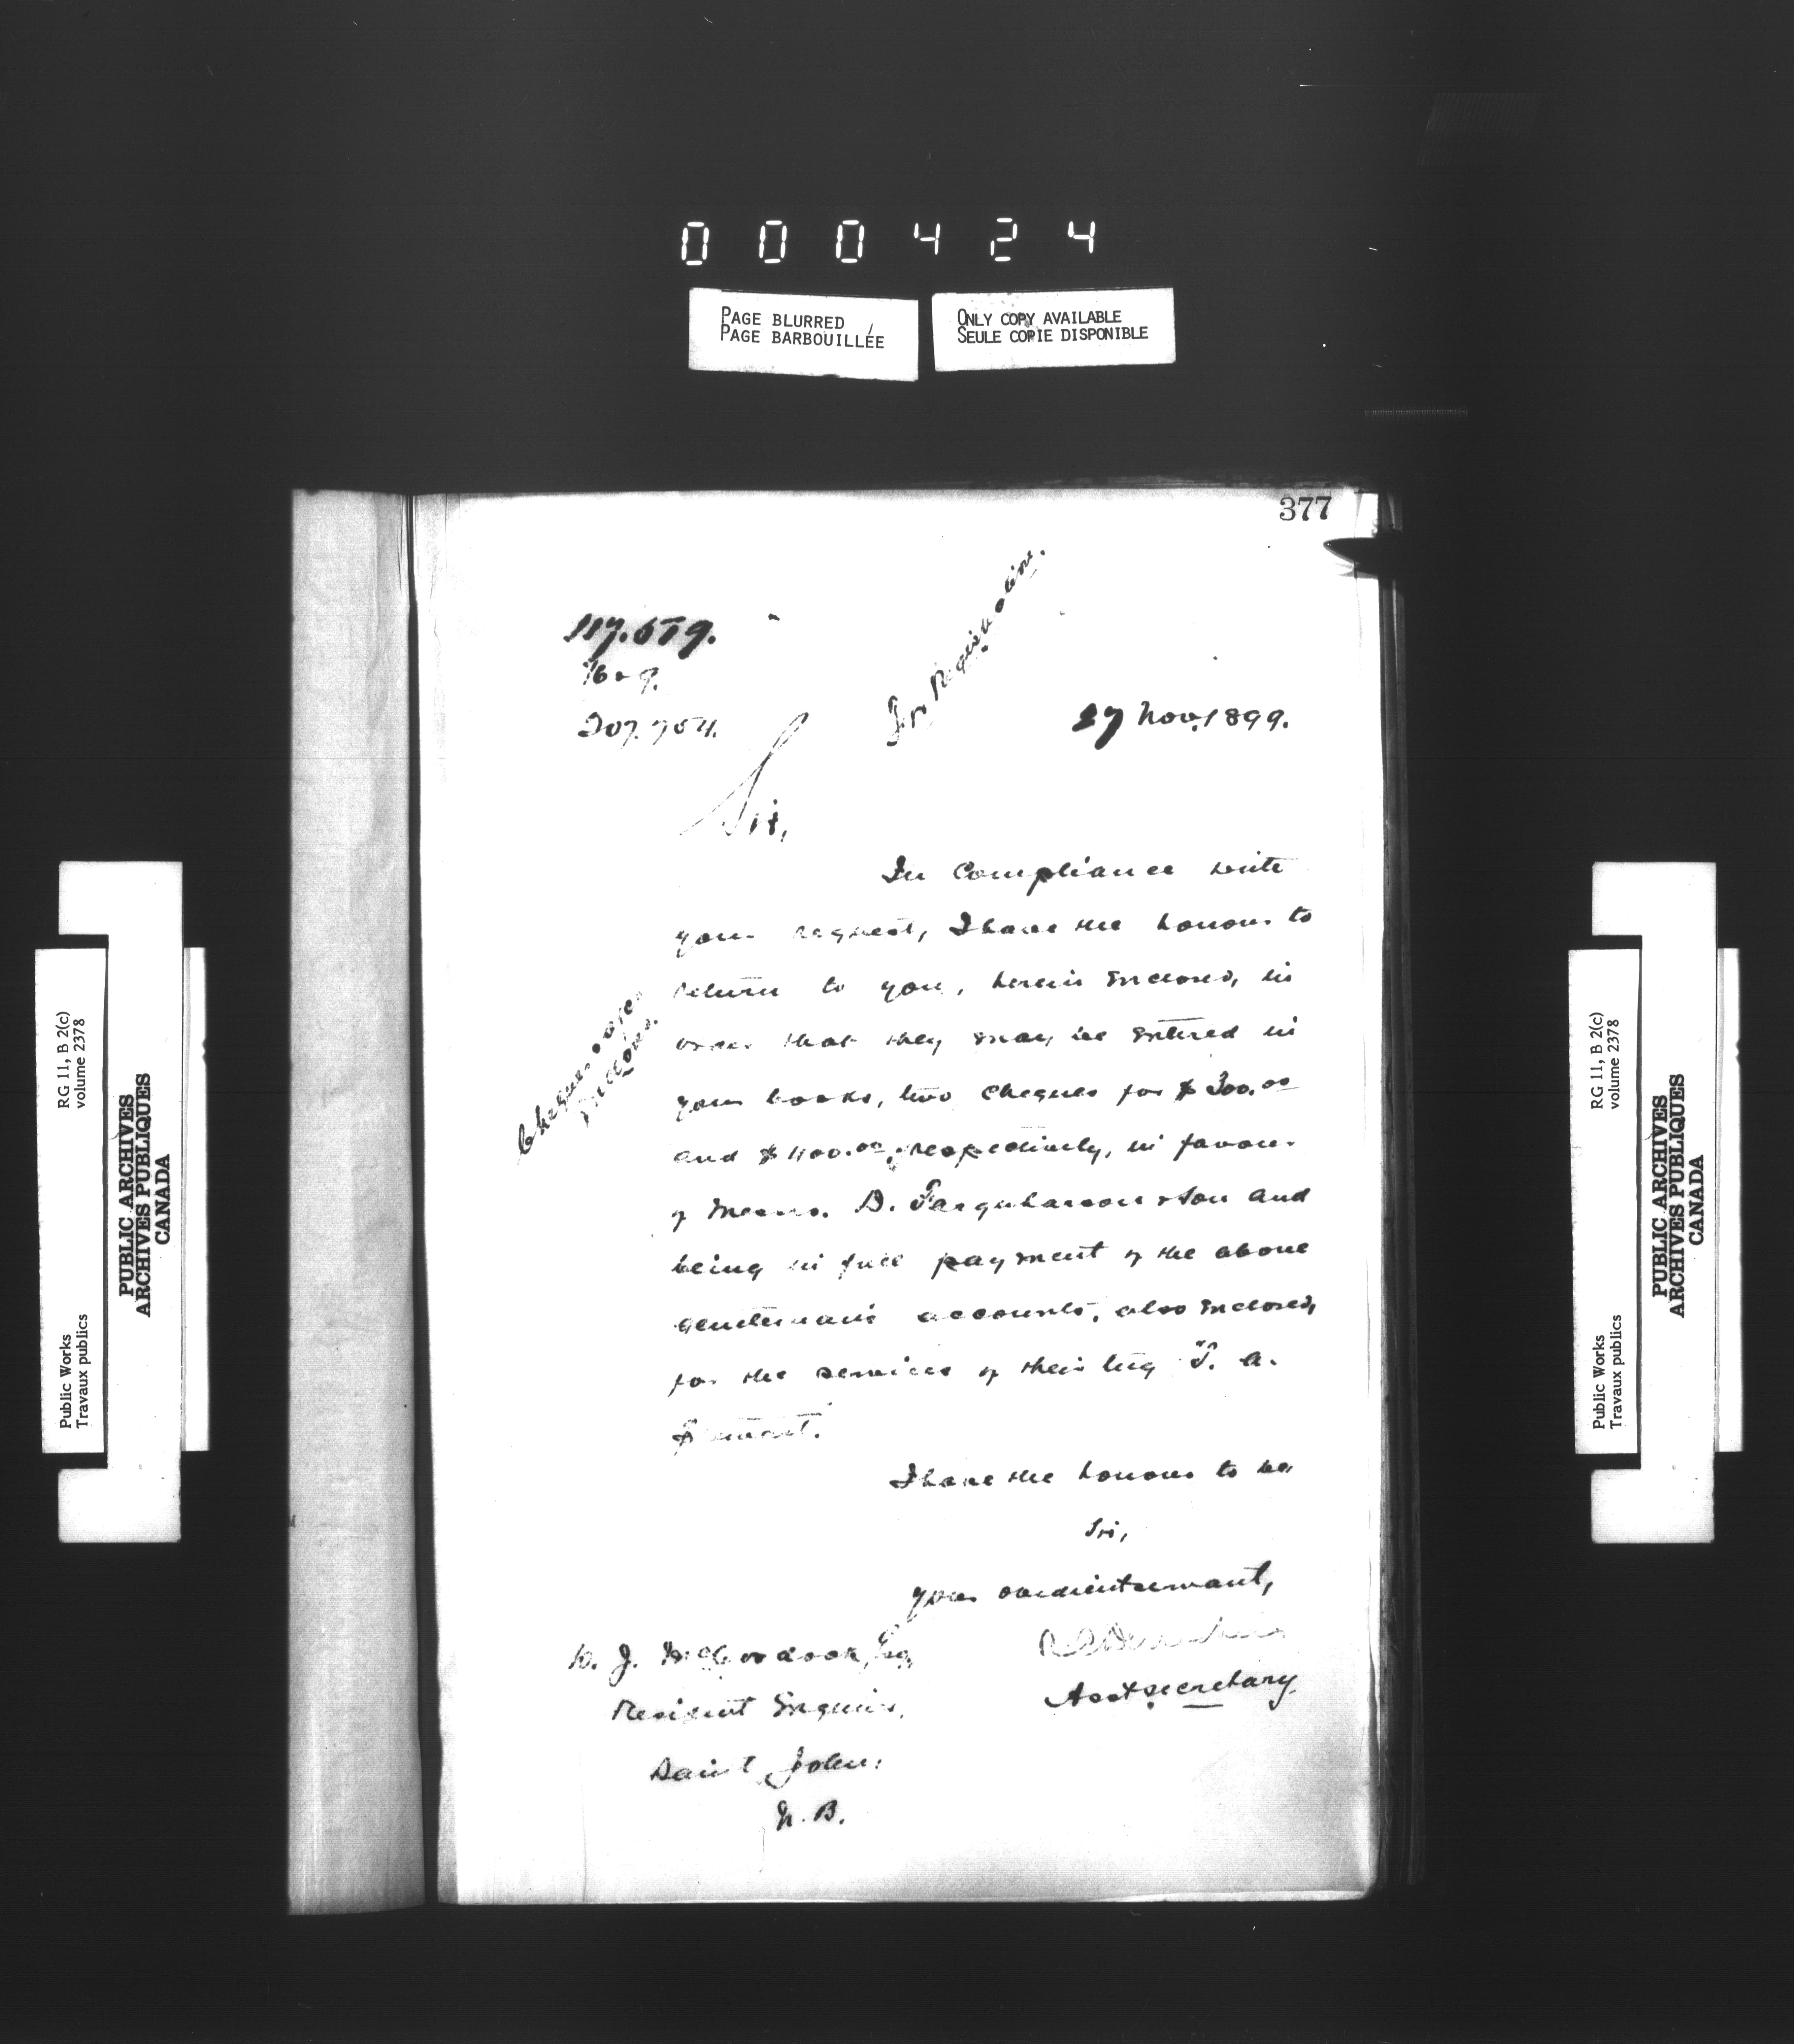 000424
PAGE BLURRED
PAGE BARBOUILLÉE
ONLY COPY AVAILABLE
SEULE COPIE DISPONIBLE
377
117.579.
207.754.
27 Nov. 1899.
Sir,
In compliance with
your request, I have the honour to
return to you, herein enclosed, in
order that they may be entered in
your books, two cheques for $300.00
and $400.00, respectively, in favour
of Messrs. D. Farquharson & Son and
being in full payment of the above
gentlemen's accounts, also enclosed,
for the services of their tug T. A.
Stewart.
Cheques are
Enclos.
I have the honour to be
Sir,
your obedient servant,
Asst secretary
Esq
Resident Engineer,
Saint John,
N. B.
PUBLIC ARCHIVES
ARCHIVES PUBLIQUES
CANADA
RG 11, B 2(c)
volume 2378
Public Works
Travaux publics
PUBLIC ARCHIVES
ARCHIVES PUBLIQUES
CANADA
RG 11, B 2(c)
volume 2378
Public Works
Travaux publics